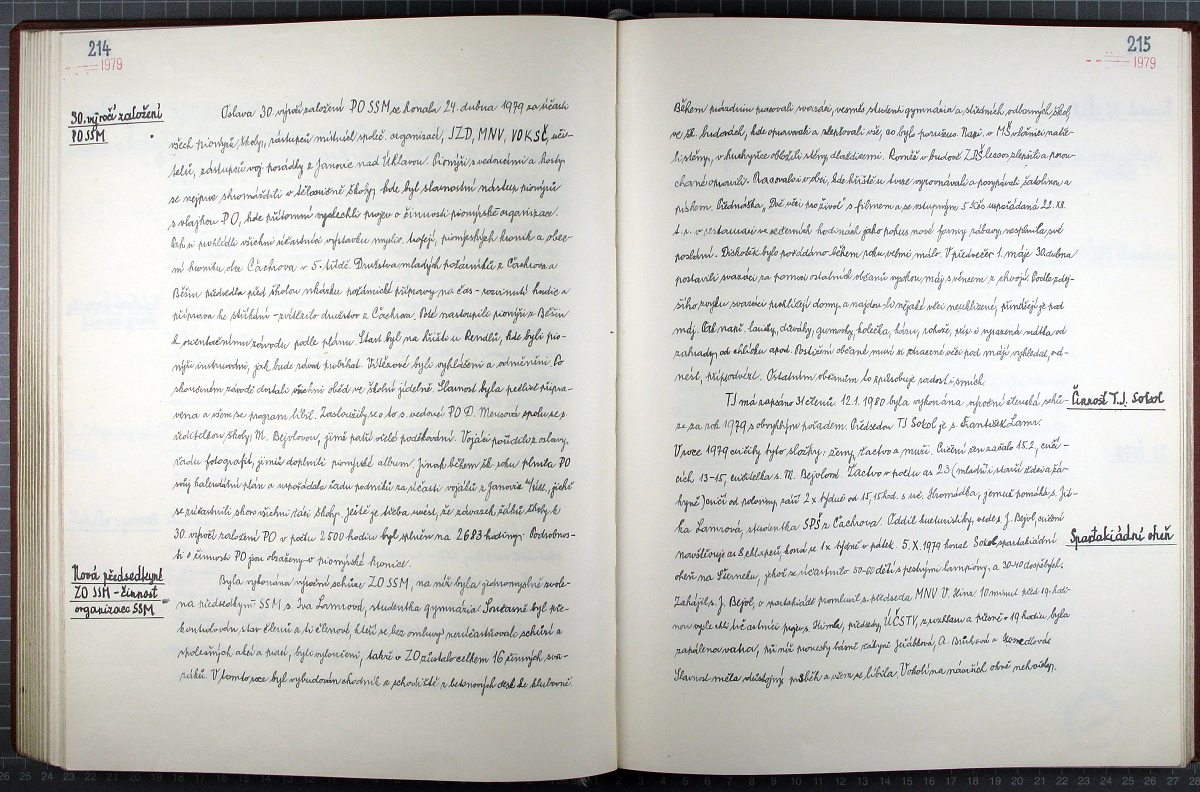 214
1979
30. výročí založení
PO SSM
Oslava 30. výročí založení PO SSM se konala 24. dubna 1979 za účasti
všech pionýrů školy, zástupců místních společ. organizací, JZD, MNV, VO KSČ, uči-
telů, zástupců voj. posádky z Janovic nad Úhlavou. Pionýři s vedoucími a hosty
se nejprve shromáždili v tělocvičně školy, kde byl slavnostní nástup pionýrů
s vlajkou PO, kde přítomní vyslechli projev o činnosti pionýrské organizace.
Pak si prohlédli všichni účastníci výstavku trofejí, pionýrských kronik a obec-
ní kroniku obce Čachrova v 5. třídě. Družstva mladých požárníků z Čachrova a
Běšin předvedla před školou ukázku požárnické přípravy na čas - rozvinutí hadic a
příprava ke stříkání - zvítězilo družstvo z Čachrova. Poté nastoupili pionýři z Běšin
k orientačnímu závodu podle plánu. Start byl na hřišti u Rendlů, kde byli pio-
nýři instruováni, jak bude závod probíhat. Vítězové byli vyhlášeni a odměněni. Po
skončeném závodě dostali všichni oběd ve školní jídelně. Slavnost byla pečlivě připra-
vena a všem se program líbil. Zasloužily se o to s. vedoucí PO D. Mourová spolu se s.
ředitelkou školy M. Bejvlovou, jimž patří vřelé poděkování. Vojáci pořídili z oslavy
řadu fotografií, jimiž doplnili pionýrské album. Jinak během šk. roku plnila PO
svůj kalendářní plán a uspořádala řadu podniků za účasti vojáků z Janovic n/Úhl., jichž
se zúčastnili skoro všichni žáci školy. Ještě je třeba uvést, že závazek žáků školy k
30. výročí založení PO v počtu 2500 hodin byl splněn na 2683 hodiny. Podrobnos-
ti o činnosti PO jsou obsaženy v pionýrské kronice.
Nová předsedkyně
ZO SSM - činnost
organizace SSM
Byla vykonána výroční schůze ZO SSM, na níž byla jednomyslně zvole-
na předsedkyní SSM s. Iva Lamrová, studentka gymnázia. Současně byl pře-
kontrolován stav členů a ti členové, kteří se bez omluvy nezúčastňovali schůzí a
společných akcí a prací, byli vyloučeni, takže v ZO zůstalo celkem 16 činných sva-
záků. V tomto roce byl vybudován chodník a schodiště z betonových desek ke klubovně.
215
1979
Během prázdnin pracovali svazáci, vesměs studenti gymnázia a středních odborných škol,
ve šk. budovách, kde opravovali a zlepšovali vše, co bylo porušeno. Např. v MŠ v ložnici natře-
li stěny, v kuchyňce obložili stěny dlaždicemi. Rovněž v budově ZDŠ leccos zlepšili a porou-
chané opravili. Pracovali v obci, kde hřiště u tvrze vyrovnávali a posypávali šotolinou a
pískem. Přednáška „Dvě věci pro život" s filmem a se vstupným 5 Kčs uspořádaná 22. XII.
t. r. v restauraci ve večerních hodinách jako pokus nové formy zábavy nesplnila své
poslání. Diskoték bylo pořádáno během roku velmi málo. V předvečer 1. máje 30. dubna
postavili svazáci za pomoci ostatních občanů vysokou máj s věncem z chvojí. Podle zdej-
šího zvyku svazáci prohlížejí domy a najdou-li nějaké věci neuklizené, přinášejí je pod
máj. Pak např. lavičky, džbány, gumovky, kolečka, káru, rohože, příp. i vyrazená vrátka od
zahrady, od chlívku apod. Postižení občané musí si ztracené věci pod májí vyhledat, od-
nést, příp. odvézt. Ostatním občanům to způsobuje radost i smích.
Činnost T.J. Sokol
TJ má zapsáno 31 členů. 12. 1. 1980 byla vykonána výroční členská schů-
ze za rok 1979 s obvyklým pořadem. Předsedou TJ Sokol je s. František Lamr.
V roce 1979 cvičily tyto složky: ženy, žactvo a muži. Cvičení žen začalo 15. 2., cviči-
cích 13-15, cvičitelka s. M. Bejvlová. Žactvo v počtu as 23 (mladší i starší žáci a žá-
kyně) cvičí od poloviny září 2 x týdně od 15,15 hod. s uč. Hromádka, jemuž pomáhá s. Jit-
ka Lamrová, studentka SPŠ z Čachrova. Oddíl kulturistiky, vede s. J. Bejvl, cvičení
navštěvuje as 8 chlapců, koná se 1x týdně v pátek. 5. X. 1979 konal Sokol spartakiádní
Spartakiádní oheň
oheň na Šterneku, jehož se zúčastnilo 50-60 dětí s pestrými lampiony a 30-40 dospělých.
Zahájil s. J. Bejvl, o spartakiádě promluvil s. předseda MNV V. Zíma. 10 minut před 19. hodi-
nou vyslechli účastníci projev s. Himla, předsedy ÚČSTV, z rozhlasu a přesně v 19 hodin byla
zapálena vatra, při níž pronesly básně žákyně Jeřábková, A. Brůhová a Knedlová.
Slavnost měla důstojný průběh a všem se líbila. V okolí na návrších ohně nehořely.